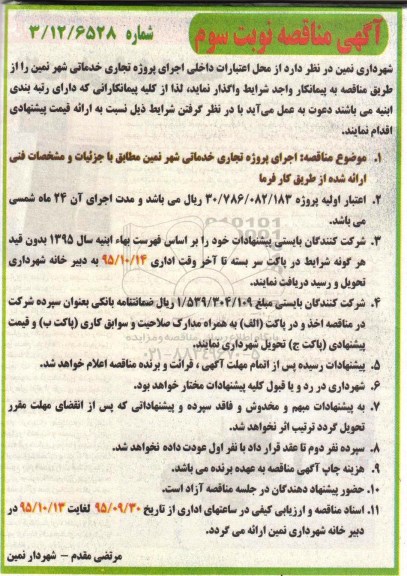 آگهی مناقصه نوبت سوم شماره ۳/۱۲/۶۵۲۸
شهرداری نمین در نظر دارد از محل اعتبارات داخلی اجرای پروژه تجاری خدماتی شهر نمین را از
طریق مناقصه به پیمانکار واجد شرایط واگذار نماید، لذا از کلیه پیمانکارانی که دارای رتبه بندی
ابنیه می باشند دعوت به عمل می‌آید با در نظر گرفتن شرایط ذیل نسبت به ارائه قیمت پیشنهادی
اقدام نمایند.
۱. موضوع مناقصه: اجرای پروژه تجاری خدماتی شهر نمین مطابق با جزئیات و مشخصات فنی
ارائه شده از طریق کار فرما
۲. اعتبار اولیه پروژه ۳۰/۷۸۶/۰۸۲/۱۸۳ ریال می باشد و مدت اجرای آن ۲۴ ماه شمسی
می باشد.
۳. شرکت کنندگان بایستی پیشنهادات خود را بر اساس فهرست بهاء ابنیه سال ۱۳۹۵ بدون قید
هر گونه شرایط در پاکت سر بسته تا آخر وقت اداری ۹۵/۱۰/۱۴ به دبیر خانه شهرداری
تحویل و رسید دریافت نمایند.
۴. شرکت کنندگان بایستی مبلغ ۱/۵۳۹/۳۰۴/۱۰۹ ریال ضمانتنامه بانکی بعنوان سپرده شرکت
در مناقصه اخذ و در پاکت (الف) به همراه مدارک صلاحیت و سوابق کاری (پاکت ب) و قیمت
پیشنهادی (پاکت ج) تحویل شهرداری نمایند.
۵. پیشنهادات رسیده پس از اتمام مهلت آگهی ، قرائت و برنده مناقصه اعلام خواهد شد.
۶. شهرداری در رد و یا قبول کلیه پیشنهادات مختار خواهد بود.
۷. به پیشنهادات مبهم و مخدوش و فاقد سپرده و پیشنهاداتی که پس از انقضای مهلت مقرر
تحویل گردد ترتیب اثر نخواهد شد.
۸. سپرده نفر دوم تا عقد قرار داد با نفر اول عودت داده نخواهد شد.
۹. هزینه چاپ آگهی مناقصه به عهده برنده می باشد.
۱۰. حضور پیشنهاد دهندگان در جلسه مناقصه آزاد است.
۱۱. اسناد مناقصه و ارزیابی کیفی در ساعتهای اداری از تاریخ ۹۵/۰۹/۳۰ لغایت ۹۵/۱۰/۱۳ در
دبیر خانه شهرداری نمین ارائه می گردد.
مرتضی مقدم – شهردار نمین